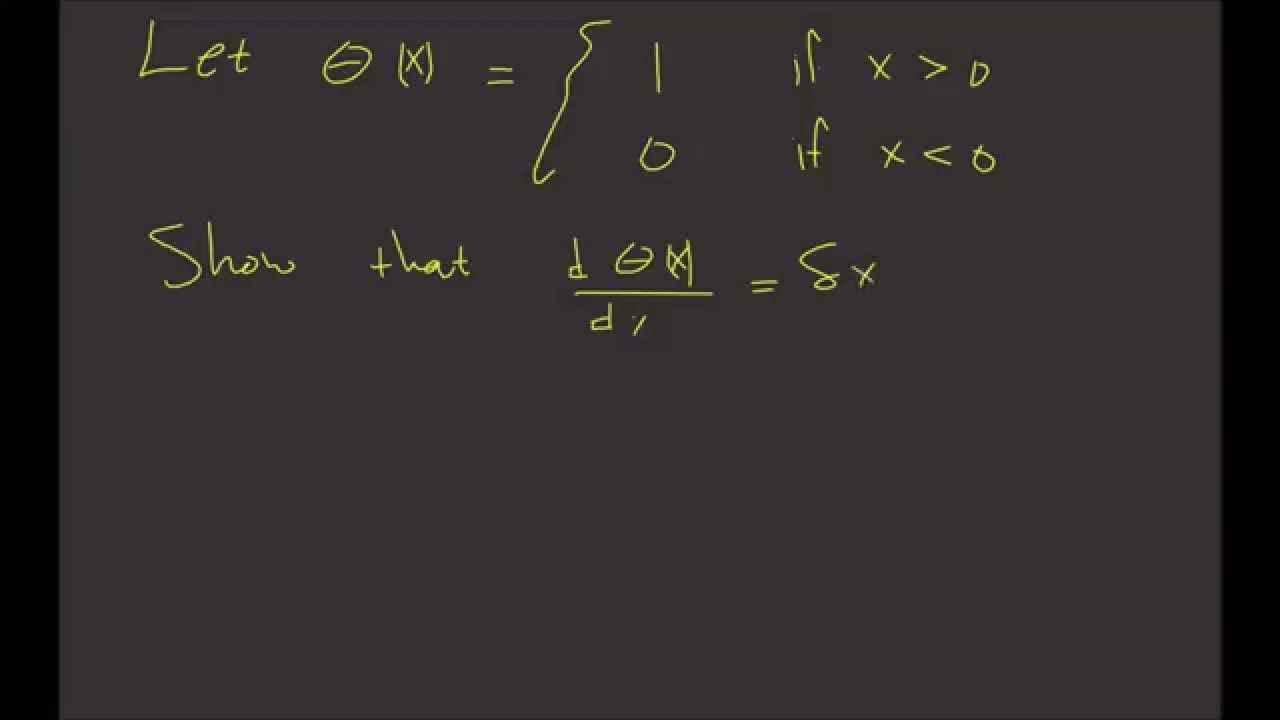 Let Θ(x) = { 1 if x > 0
0 if x < 0
Show that d Θ(x) / dx = δx